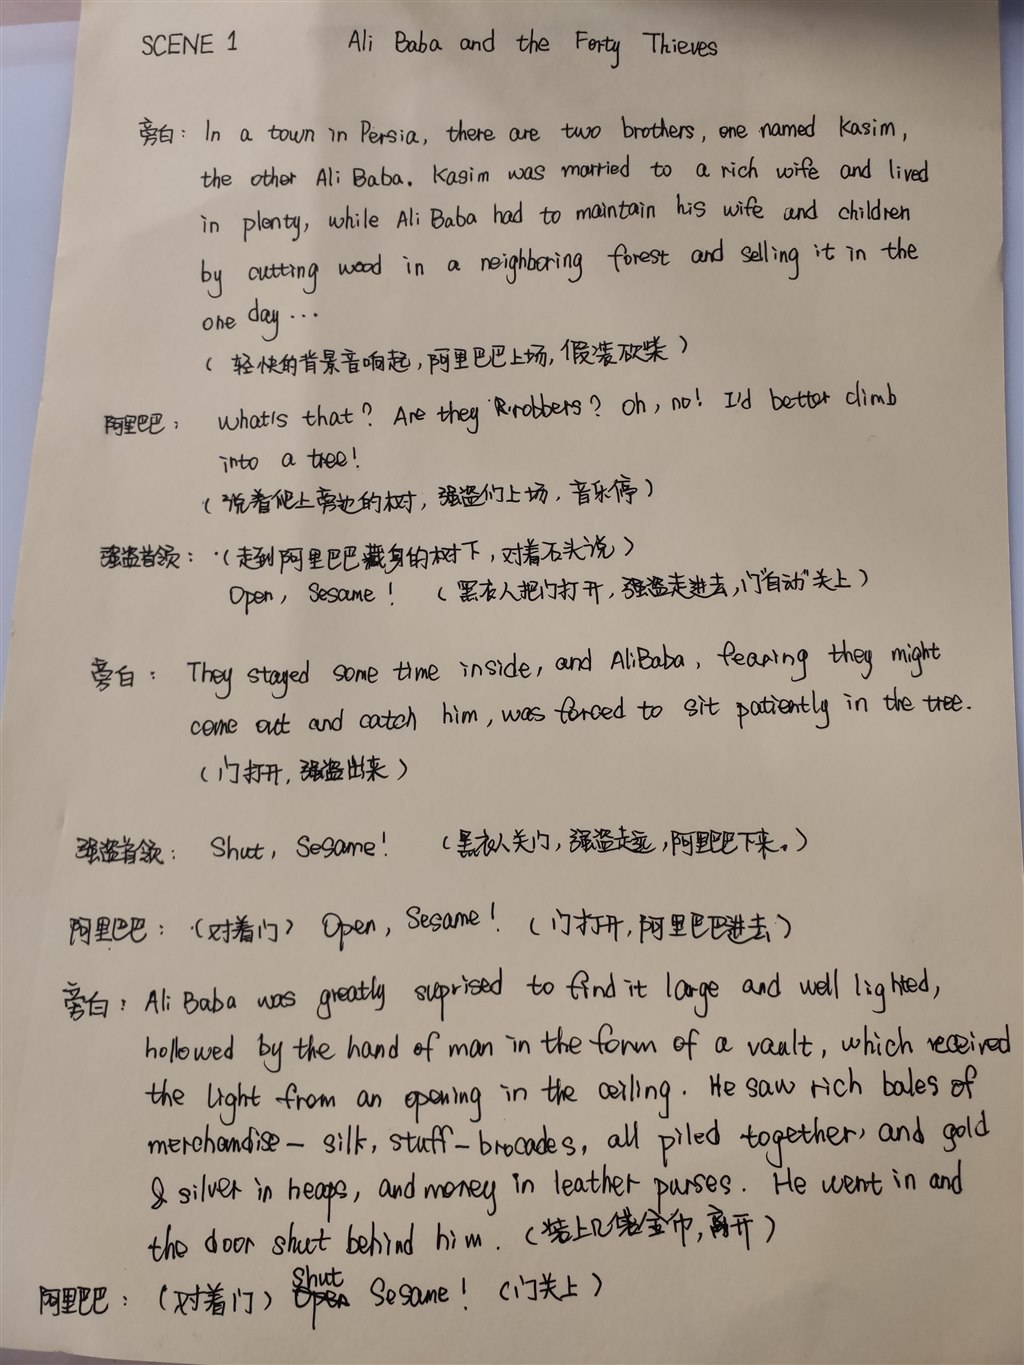 SCENE 1 Ali Baba and the Forty Thieves
旁白: In a town in Persia, there are two brothers, one named Kasim,
the other Ali Baba. Kasim was married to a rich wife and lived
in plenty, while Ali Baba had to maintain his wife and children
by cutting wood in a neighboring forest and selling it in the
one day ...
(轻快的背景音响起,阿里巴巴上场,假装砍柴)
阿里巴巴: What's that? Are they robbers? Oh, no! I'd better climb
into a tree!
(说着爬上旁边的树,强盗们上场,音乐停)
强盗首领: (走到阿里巴巴藏身的树下,对着石头说)
Open, Sesame! (黑衣人把门打开,强盗走进去,门"自动"关上)
旁白: They stayed some time inside, and AliBaba, fearing they might
come out and catch him, was forced to sit patiently in the tree.
(门打开,强盗出来)
强盗首领: Shut, Sesame! (黑衣人关门,强盗走远,阿里巴巴下来。)
阿里巴巴: (对着门) Open, Sesame! (门打开,阿里巴巴进去)
旁白: Ali Baba was greatly suprised to find it large and well lighted,
hollowed by the hand of man in the form of a vault, which received
the light from an opening in the ceiling. He saw rich bales of
merchandise - silk, stuff-brocades, all piled together, and gold
& silver in heaps, and money in leather purses. He went in and
the door shut behind him. (装上几袋金币,离开)
阿里巴巴: (对着门) Shut Sesame! (门关上)